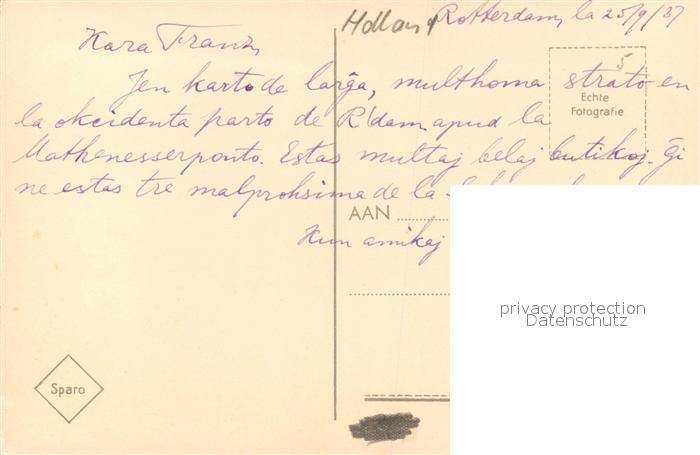 Holland Rotterdam, la 25/9/37
Kara Franz,
Jen karto de larĝa, multhoma strato en
la okcidenta parto de R'dam apud la
Mathenesserponto. Estas multaj belaj butikoj. Ĝi
ne estas tre malproksima de la
Kun amikaj
5
Echte
Fotografie
AAN
Sparo
privacy protection
Datenschutz